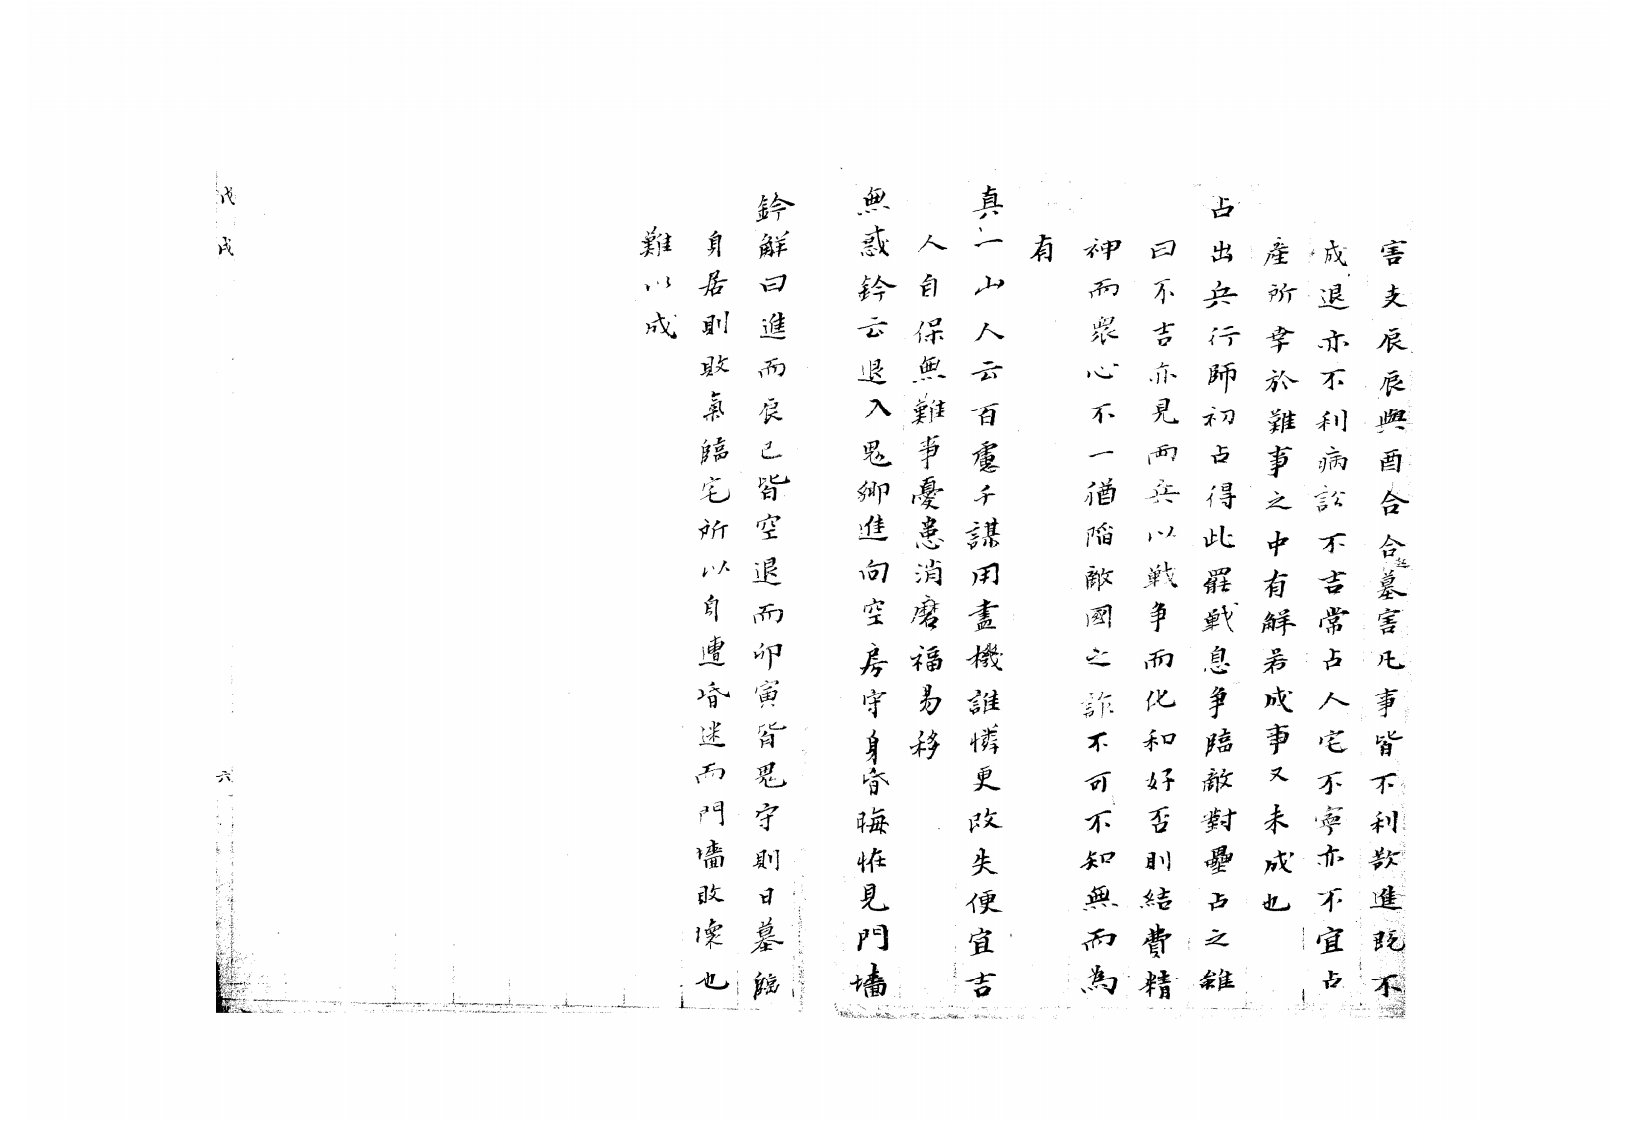 害支辰辰與酉合合起墓害凡事皆不利欲進既不
成退亦不利病訟不吉常占人宅不寧亦不宜占
產所幸於難事之中有解若成事又未成也
占出兵行師初占得此罷戰息争臨敵對壘占之雖
曰不吉亦見兩兵以戰争而化和好否則結費精
神而衆心不一猶陷敵國之詐不可不知無而為
有
真一山人云百慮千謀用盡機誰憐更改失便宜吉
人自保無難事憂患消磨福易移
無惑鈐云退入鬼鄉進向空房守身昏晦惟見門墻
鈐解曰進而辰巳皆空退而卯寅皆鬼守則日墓臨
身居則敗氣臨宅所以自遭昏迷而門墻敗壞也
難以成
戊戌
六